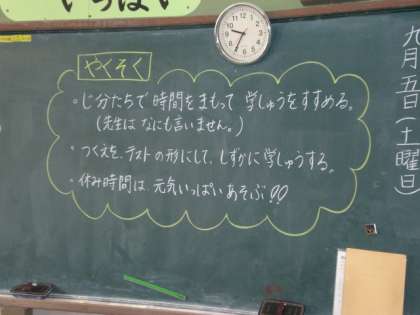 いっぱい
やくそく
・じ分たちで時間をまもって学しゅうをすすめる。
(先生はなにも言いません。)
・つくえを、テストの形にして、しずかに学しゅうする。
・休み時間は、元気いっぱいあそぶ!!
九月五日(土曜日)